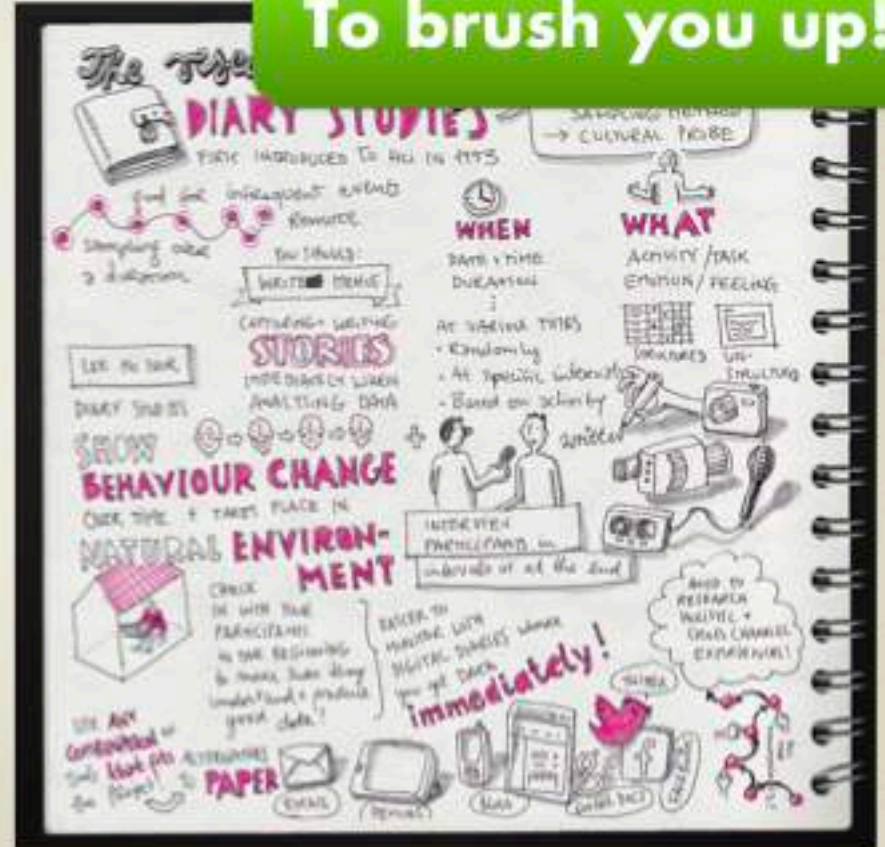 To brush you up!
The
DIARY STUDIES
FIRST INTRODUCED TO HCI IN 1993
SAMPLING METHOD
→ CULTURAL PROBE
good for infrequent events
REMOTE
sampling over
a duration
YOU SHOULD:
WRITE MEMOS
CAPTURING + WRITING
STORIES
IMMEDIATELY WHEN
ANALYSING DATA
WHEN
DATE + TIME
DURATION
AT VARIOUS TIMES
• Randomly
• At specific intervals
• Based on activity
WHAT
ACTIVITY / TASK
EMOTION / FEELING
STRUCTURED
UN-
STRUCTURED
DIARY STUDIES
SHOW
BEHAVIOUR CHANGE
OVER TIME + TAKES PLACE IN
NATURAL ENVIRON-
MENT
INTERVIEW
PARTICIPANTS in
intervals or at the end
CHECK
IN WITH YOUR
PARTICIPANTS
IN THE BEGINNING
to make sure they
understand + produce
good data!
EASIER TO
MONITOR WITH
DIGITAL DIARIES WHERE
you get DATA
immediately!
GOOD TO
RESEARCH
HOLISTIC +
CROSS CHANNEL
EXPERIENCES!
USE ANY
COMBINATION of
tools that fits
the project
ALTERNATIVES
TO PAPER
EMAIL
TWITTER